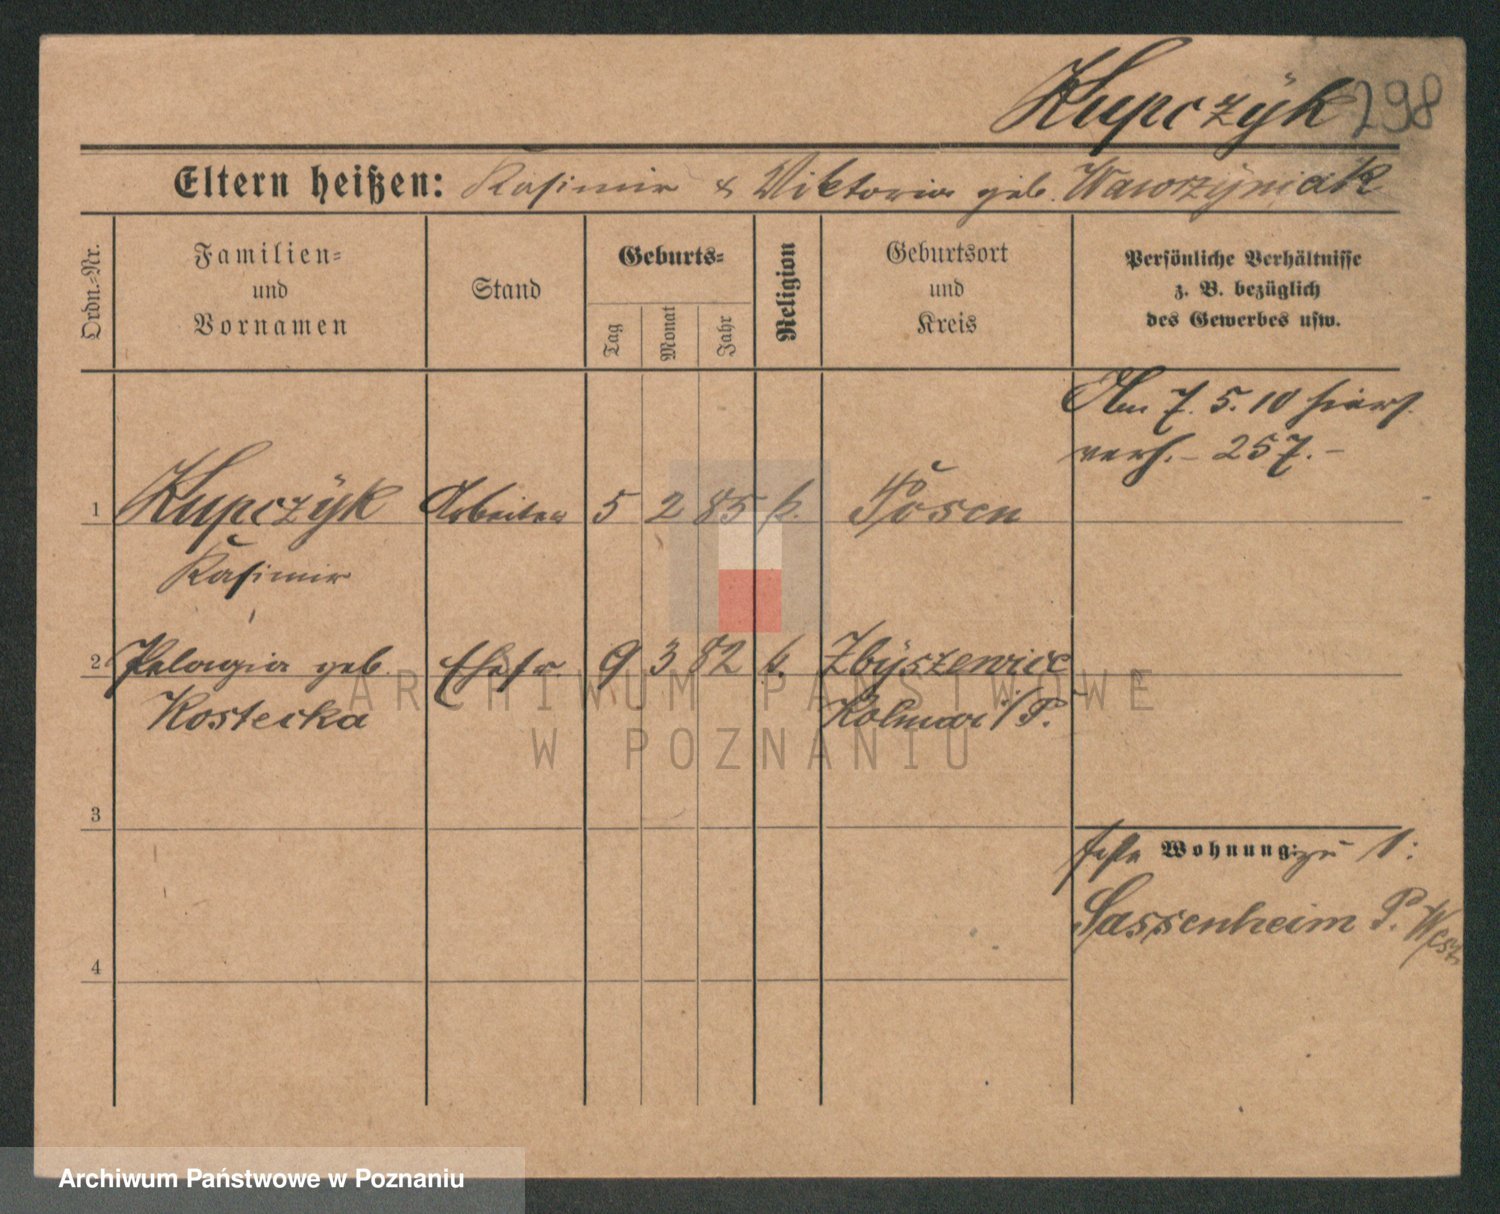 Kupczÿk 298
Eltern heißen: Kasimir & Viktoria geb. Wawrzÿniak
Ordn.-Nr.
Familien-
und
Vornamen
Stand
Geburts-
Tag
Monat
Jahr
Religion
Geburtsort
und
Kreis
Persönliche Verhältnisse
z. B. bezüglich
des Gewerbes usw.
Am 7. 5. 10 hiers.
verh. – 257. –
1 Kupczÿk Arbeiter 5 2 85 k. Posen
Kasimir
2 Pelagia geb. Ehefr. 9 3 82 k. Zbÿszewice
Kostecka Kolmar i/P.
3
Wohnung: zu 1:
Sassenheim P. West
4
ARCHIWUM PAŃSTWOWE
W POZNANIU
Archiwum Państwowe w Poznaniu